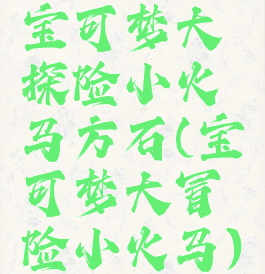 宝可梦大
探险小火
马方石(宝
可梦大冒
险小火马)